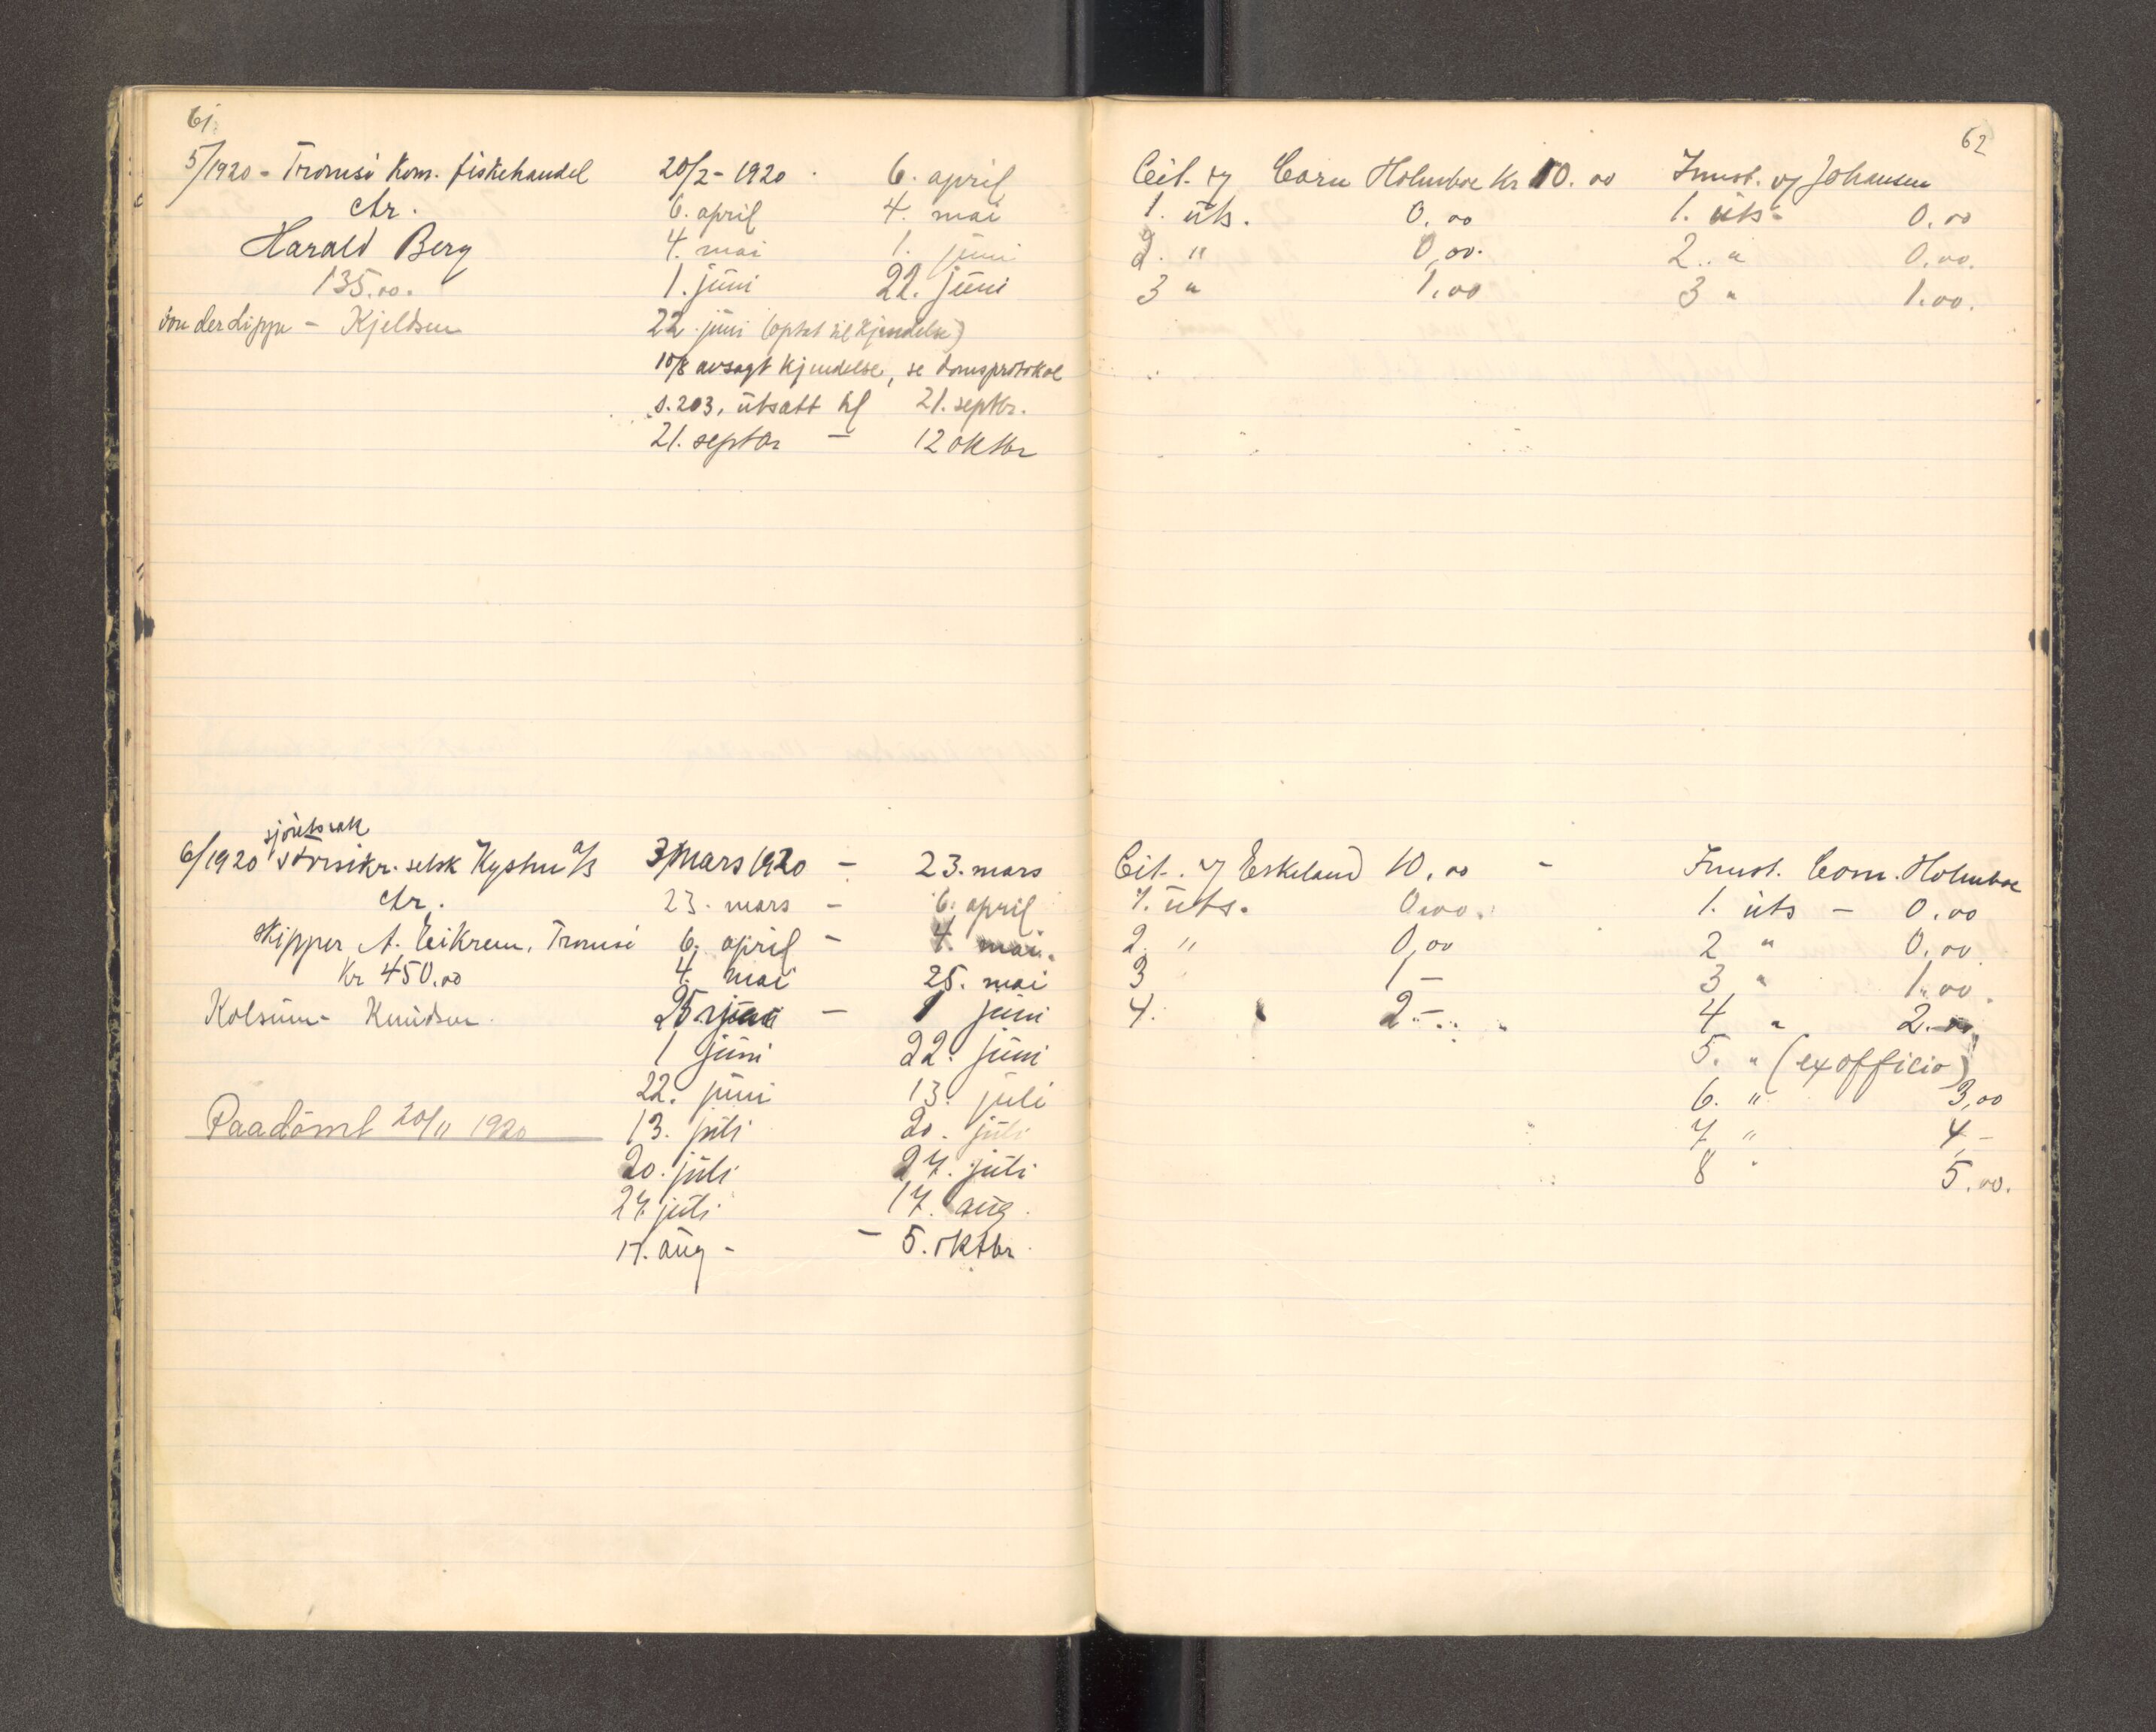 61.
5/1920 - Tromsö kom. fiskehandel 20/2 - 1920 6. april
ctr. 6. april 4. mai
Harald Berg 4. mai 1. juni
135.00. 1. juni 22. juni
von der Lippe - Kjeldsen 22. juni (optat til kjendelse)
10/8 avsagt kjendelse, se domsprotokol
s. 203, utsatt til 21. septbr.
21. septbr - 12 oktbr
6/1920 sjöretssak
Forsikr. selsk Kysten a/s 3/mars 1920 - 23. mars
ctr. 23. mars - 6. april
skipper A. Eikrem, Tromsö 6. april - 4. mai.
Kr 450.00 4. mai 25. mai
Kolsum - Knudsen 25 - 1 juni
1 juni 22. juni
22. juni 13. juli
Paadömt 20/11 1920 13. juli 20. juli
20. juli 27. juli
27. juli 17. aug.
17. aug - - 5. oktbr.
62
Cit. og Holmboe Kr 10.00 Innst. og Johansen
1. uts. 0.00 1. uts - 0.00
2. " 0,00. 2. " 0.00.
3 " 1.00 3 " 1.00.
Cit. og Eskeland 10.00 - Innst. Holmboe
1. uts. 0.00. 1. uts - 0.00
2. " 0,00 2 " 0.00
3 1 - 3 " 1.00.
4. 2 - 4 " 2.00
5. " (ex officio)
6. " 3,00
7 " 4 -
8 " 5.00.